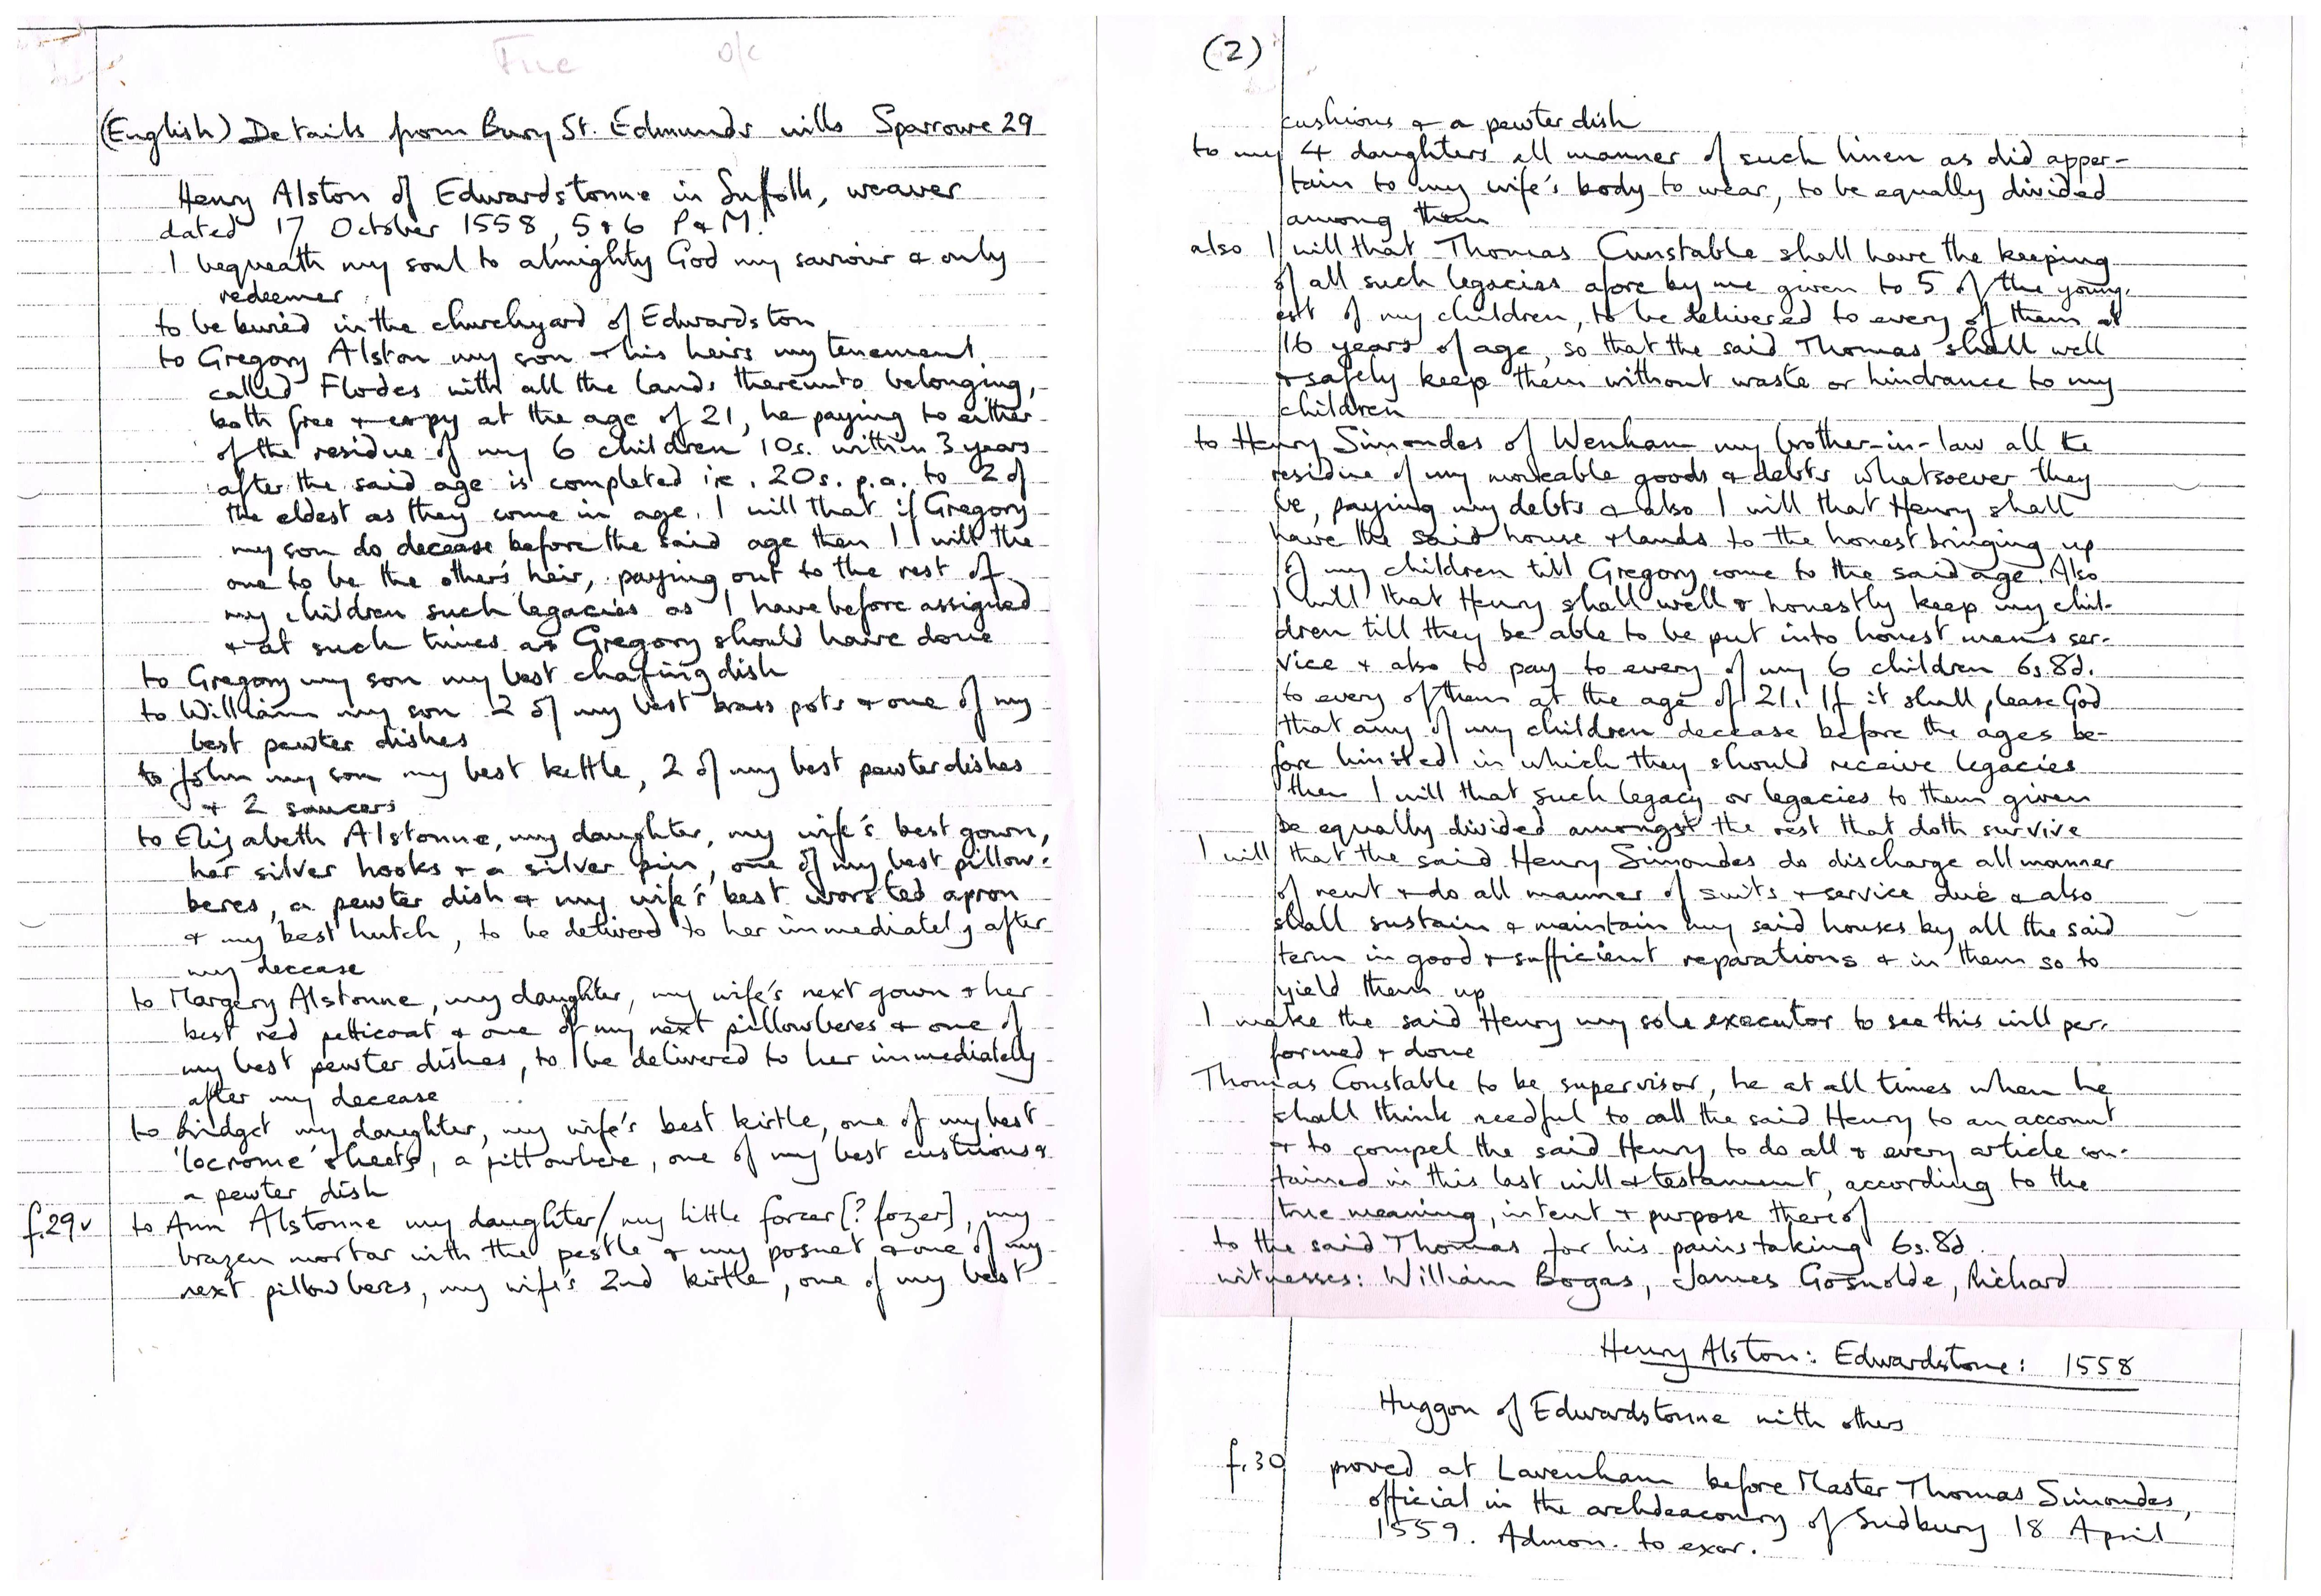 File o/c
(English) Details from Bury St. Edmunds wills Sparrowe 29
Henry Alston of Edwardstonne in Suffolk, weaver
dated 17 October 1558, 5 + 6 P + M.
I bequeath my soul to almighty God my saviour + only
redeemer
to be buried in the churchyard of Edwardston
to Gregory Alston my son + his heirs my tenement
called Flodes with all the lands thereunto belonging,
both free + copy at the age of 21, he paying to either
of the residue of my 6 children 10s. within 3 years
after the said age is completed i.e. 20s. p.a. to 2 of
the eldest as they come in age. I will that if Gregory
my son do decease before the said age then I will the
one to be the other's heir, paying out to the rest of
my children such legacies as I have before assigned
+ at such times as Gregory should have done
to Gregory my son my best chafing dish
to William my son 2 of my best brass pots + one of my
best pewter dishes
to John my son my best kettle, 2 of my best pewter dishes
+ 2 saucers
to Elizabeth Alstonne, my daughter, my wife's best gown,
her silver hooks + a silver pin, one of my best pillow-
beres, a pewter dish + my wife's best worsted apron
+ my best hutch, to be delivered to her immediately after
my decease
to Margery Alstonne, my daughter, my wife's next gown + her
best red petticoat + one of my next pillowberes + one of
my best pewter dishes, to be delivered to her immediately
after my decease
to Bridget my daughter, my wife's best kirtle, one of my best
'locrome' sheets, a pillowbere, one of my best cushions +
a pewter dish
f.29v to Ann Alstonne my daughter/ my little forcer [? fozer], my
brazen mortar with the pestle + my posnet + one of my
next pillowberes, my wife's 2nd kirtle, one of my best
(2)
cushions + a pewter dish
to my 4 daughters all manner of such linen as did apper-
tain to my wife's body to wear, to be equally divided
among them
also I will that Thomas Cunstable shall have the keeping
of all such legacies afore by me given to 5 of the young-
est of my children, to be delivered to every of them at
16 years of age, so that the said Thomas shall well
+ safely keep them without waste or hindrance to my
children
to Henry Simondes of Wenham my brother-in-law all the
residue of my moveable goods + debts whatsoever they
be, paying my debts + also I will that Henry shall
have the said house + lands to the honest bringing up
of my children till Gregory come to the said age. Also
I will that Henry shall well + honestly keep my chil-
dren till they be able to be put into honest men's ser-
vice + also to pay to every of my 6 children 6s. 8d.
to every of them at the age of 21. If it shall please God
that any of my children decease before the ages be-
fore limited in which they should receive legacies
then I will that such legacy or legacies to them given
be equally divided amongst the rest that doth survive
I will that the said Henry Simondes do discharge all manner
of rent + do all manner of suits + service due + also
shall sustain + maintain my said houses by all the said
term in good + sufficient reparations + in them so to
yield them up
I make the said Henry my sole executor to see this will per-
formed + done
Thomas Constable to be supervisor, he at all times when he
shall think needful to call the said Henry to an account
+ to compel the said Henry to do all + every article con-
tained in this last will + testament, according to the
true meaning, intent + purpose thereof
to the said Thomas for his painstaking 6s. 8d.
witnesses: William Bogas, James Gosnolde, Richard
Henry Alston: Edwardstone: 1558
Huggon of Edwardstonne with others
f.30 proved at Lavenham before Master Thomas Simondes,
official in the archdeaconry of Sudbury 18 April
1559. Admon. to exor.